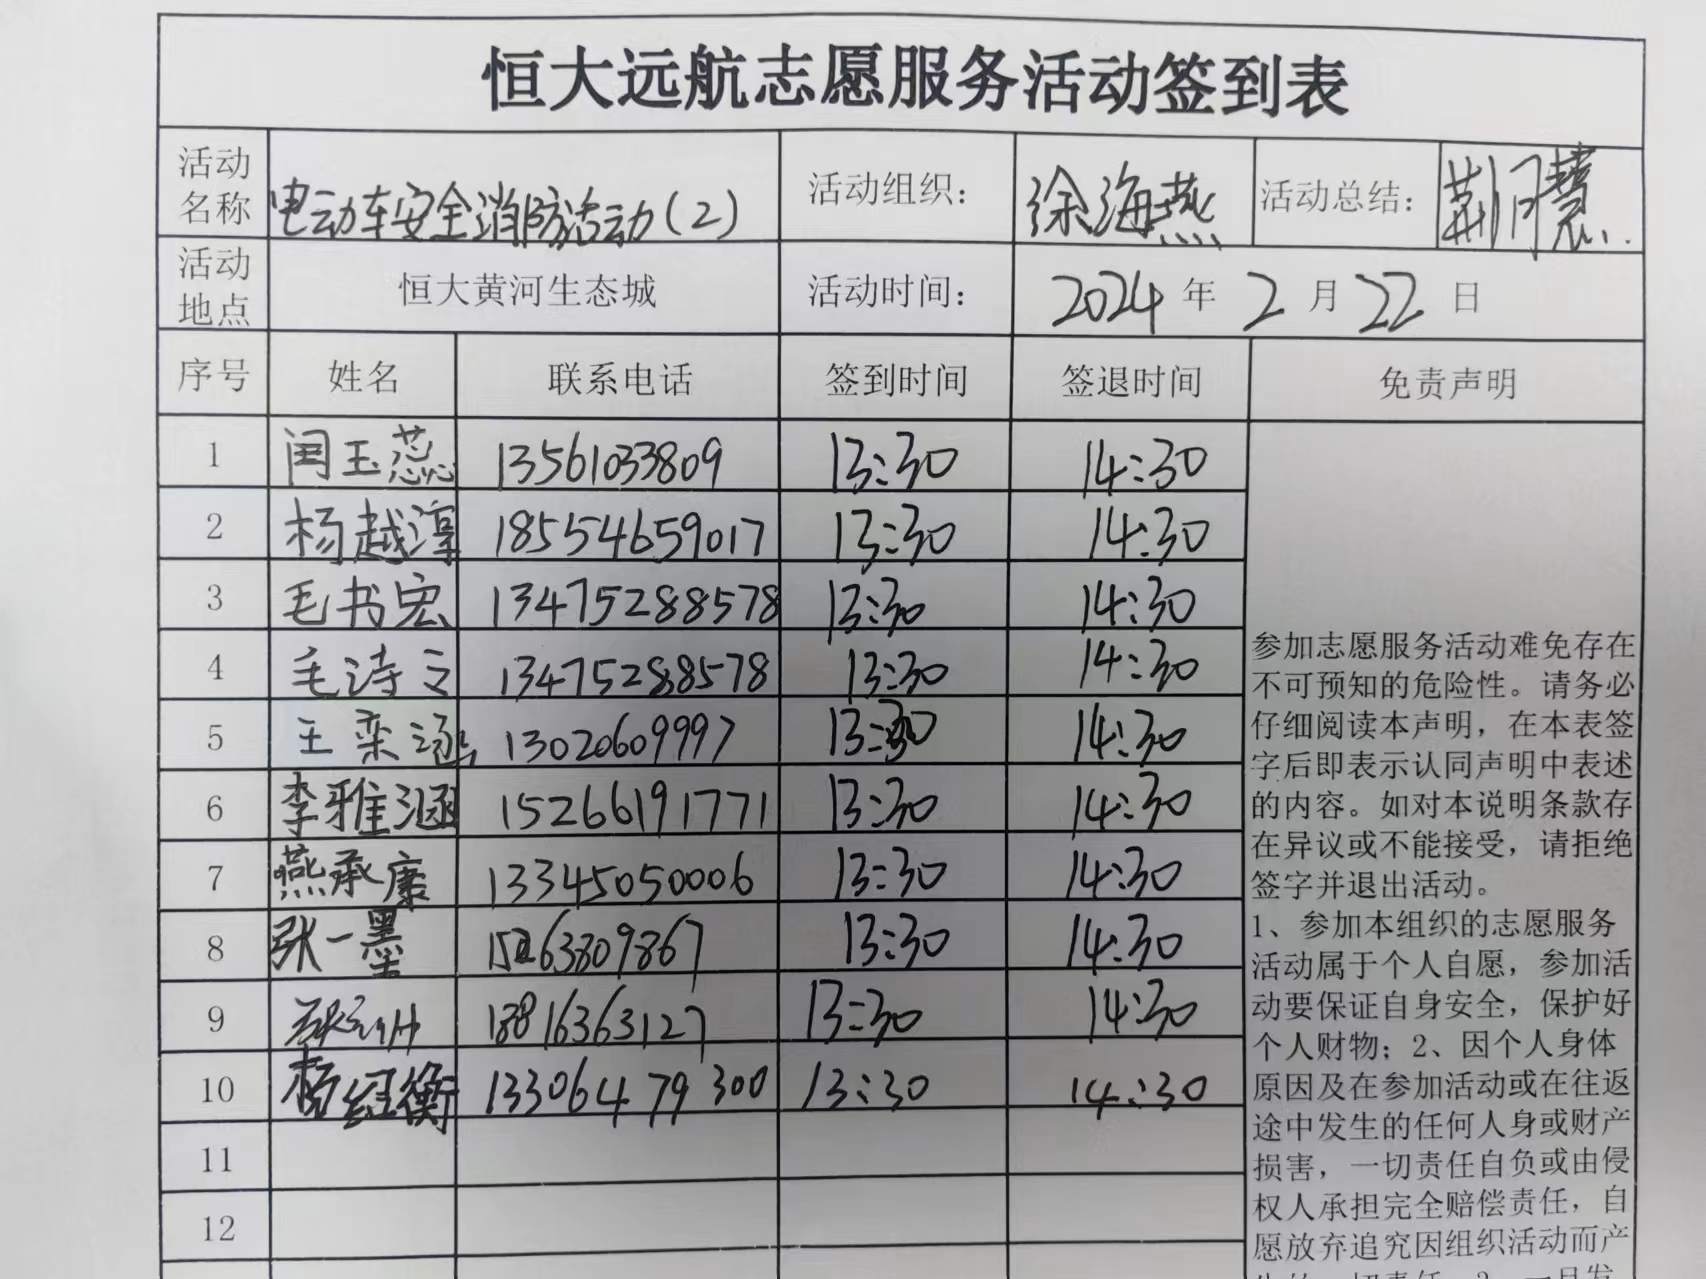 恒大远航志愿服务活动签到表
活动名称 电动车安全消防活动(2) 活动组织: 徐海燕 活动总结: 荆月慧
活动地点 恒大黄河生态城 活动时间: 2024 年 2 月 22 日
序号 姓名 联系电话 签到时间 签退时间 免责声明
1 闫玉蕊 13561033809 13:30 14:30
2 杨越淳 18554659017 13:30 14:30
3 毛书宏 13475288578 13:30 14:30
4 毛诗文 13475288578 13:30 14:30
5 王栾涵 13020609997 13:30 14:30
6 李雅涵 15266191771 13:30 14:30
7 燕承康 13345050006 13:30 14:30
8 张一墨 15263809867 13:30 14:30
9 13816363127 13:30 14:30
10 杨经衡 13306479300 13:30 14:30
11
12
参加志愿服务活动难免存在
不可预知的危险性。请务必
仔细阅读本声明，在本表签
字后即表示认同声明中表述
的内容。如对本说明条款存
在异议或不能接受，请拒绝
签字并退出活动。
1、参加本组织的志愿服务
活动属于个人自愿，参加活
动要保证自身安全，保护好
个人财物；2、因个人身体
原因及在参加活动或在往返
途中发生的任何人身或财产
损害，一切责任自负或由侵
权人承担完全赔偿责任，自
愿放弃追究因组织活动而产